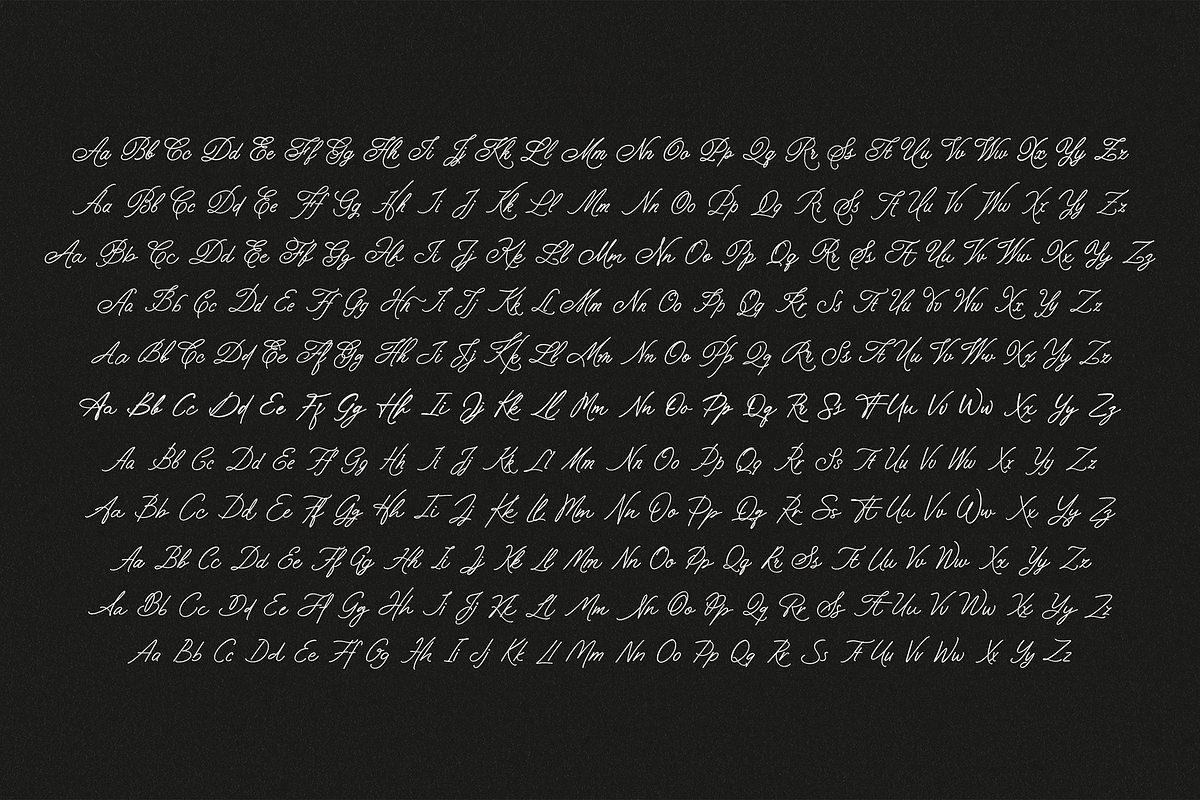 Aa Bb Cc Dd Ee Ff Gg Hh Ii Jj Kk Ll Mm Nn Oo Pp Qq Rr Ss Tt Uu Vv Ww Xx Yy Zz
Aa Bb Cc Dd Ee Ff Gg Hh Ii Jj Kk Ll Mm Nn Oo Pp Qq Rr Ss Tt Uu Vv Ww Xx Yy Zz
Aa Bb Cc Dd Ee Ff Gg Hh Ii Jj Kk Ll Mm Nn Oo Pp Qq Rr Ss Tt Uu Vv Ww Xx Yy Zz
Aa Bb Cc Dd Ee Ff Gg Hh Ii Jj Kk Ll Mm Nn Oo Pp Qq Rr Ss Tt Uu Vv Ww Xx Yy Zz
Aa Bb Cc Dd Ee Ff Gg Hh Ii Jj Kk Ll Mm Nn Oo Pp Qq Rr Ss Tt Uu Vv Ww Xx Yy Zz
Aa Bb Cc Dd Ee Ff Gg Hh Ii Jj Kk Ll Mm Nn Oo Pp Qq Rr Ss Tt Uu Vv Ww Xx Yy Zz
Aa Bb Cc Dd Ee Ff Gg Hh Ii Jj Kk Ll Mm Nn Oo Pp Qq Rr Ss Tt Uu Vv Ww Xx Yy Zz
Aa Bb Cc Dd Ee Ff Gg Hh Ii Jj Kk Ll Mm Nn Oo Pp Qq Rr Ss Tt Uu Vv Ww Xx Yy Zz
Aa Bb Cc Dd Ee Ff Gg Hh Ii Jj Kk Ll Mm Nn Oo Pp Qq Rr Ss Tt Uu Vv Ww Xx Yy Zz
Aa Bb Cc Dd Ee Ff Gg Hh Ii Jj Kk Ll Mm Nn Oo Pp Qq Rr Ss Tt Uu Vv Ww Xx Yy Zz
Aa Bb Cc Dd Ee Ff Gg Hh Ii Jj Kk Ll Mm Nn Oo Pp Qq Rr Ss Tt Uu Vv Ww Xx Yy Zz